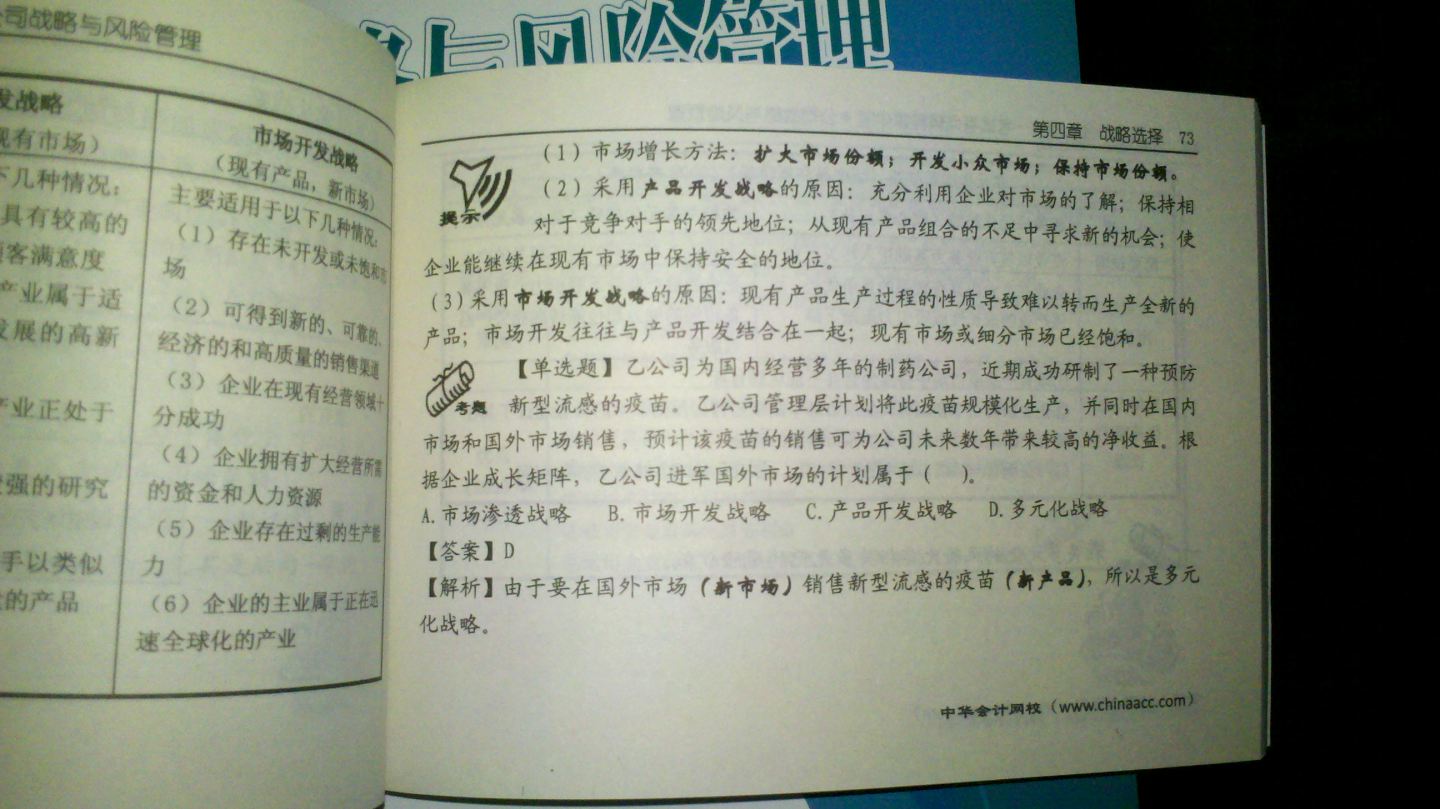 与风险管理
公司战略与风险管理
发战略
现有市场）
下几种情况：
具有较高的
顾客满意度
产业属于适
发展的高新
产业正处于
较强的研究
手以类似
的产品
市场开发战略
（现有产品，新市场）
主要适用于以下几种情况：
（1）存在未开发或未饱和市
场
（2）可得到新的、可靠的、
经济的和高质量的销售渠道
（3）企业在现有经营领域十
分成功
（4）企业拥有扩大经营所需
的资金和人力资源
（5）企业存在过剩的生产能
力
（6）企业的主业属于正在迅
速全球化的产业
第四章 战略选择 73
提示
（1）市场增长方法：扩大市场份额；开发小众市场；保持市场份额。
（2）采用产品开发战略的原因：充分利用企业对市场的了解；保持相
对于竞争对手的领先地位；从现有产品组合的不足中寻求新的机会；使
企业能继续在现有市场中保持安全的地位。
（3）采用市场开发战略的原因：现有产品生产过程的性质导致难以转而生产全新的
产品；市场开发往往与产品开发结合在一起；现有市场或细分市场已经饱和。
考题
【单选题】乙公司为国内经营多年的制药公司，近期成功研制了一种预防
新型流感的疫苗。乙公司管理层计划将此疫苗规模化生产，并同时在国内
市场和国外市场销售，预计该疫苗的销售可为公司未来数年带来较高的净收益。根
据企业成长矩阵，乙公司进军国外市场的计划属于（ ）。
A.市场渗透战略 B.市场开发战略 C.产品开发战略 D.多元化战略
【答案】D
【解析】由于要在国外市场（新市场）销售新型流感的疫苗（新产品），所以是多元
化战略。
中华会计网校（www.chinaacc.com）